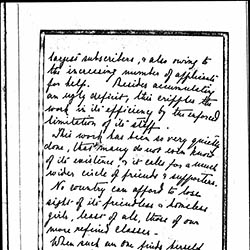 largest subscribers, & also owing to
the increasing number of applicants
for help. Besides accumulating
an ugly deficit, this cripples the
work in its efficiency by the enforced
limitation of its staff.
This work has been so very quietly
done, that many do not even know
of its existence & it calls for a much
wider circle of friends & supporters.
No country can afford to lose
sight of its friendless & homeless
girls, least of all, those of our
more refined classes.
When such an one finds herself